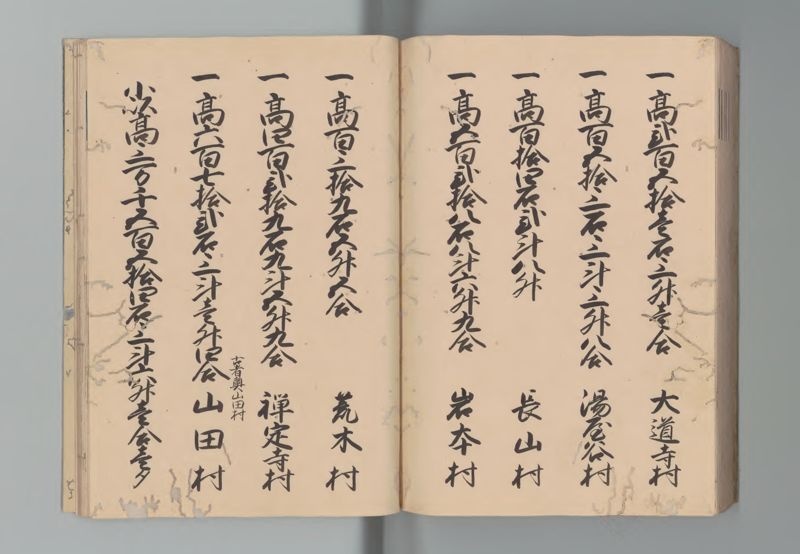 一高弐百五拾壱石三升壱合 大道寺村
一高百五拾三石三斗三升八合 湯屋谷村
一高百拾四石弐斗八升 長山村
一高五百弐拾八石八斗六升九合 岩本村
一高百三拾九石五升五合 荒木村
一高四百弐拾九石九斗五升九合 禅定寺村
一高六百七拾弐石三斗壱升四合 山田村
古者奥山田村
高三万千五百五拾四石三斗六升壱合壱夕